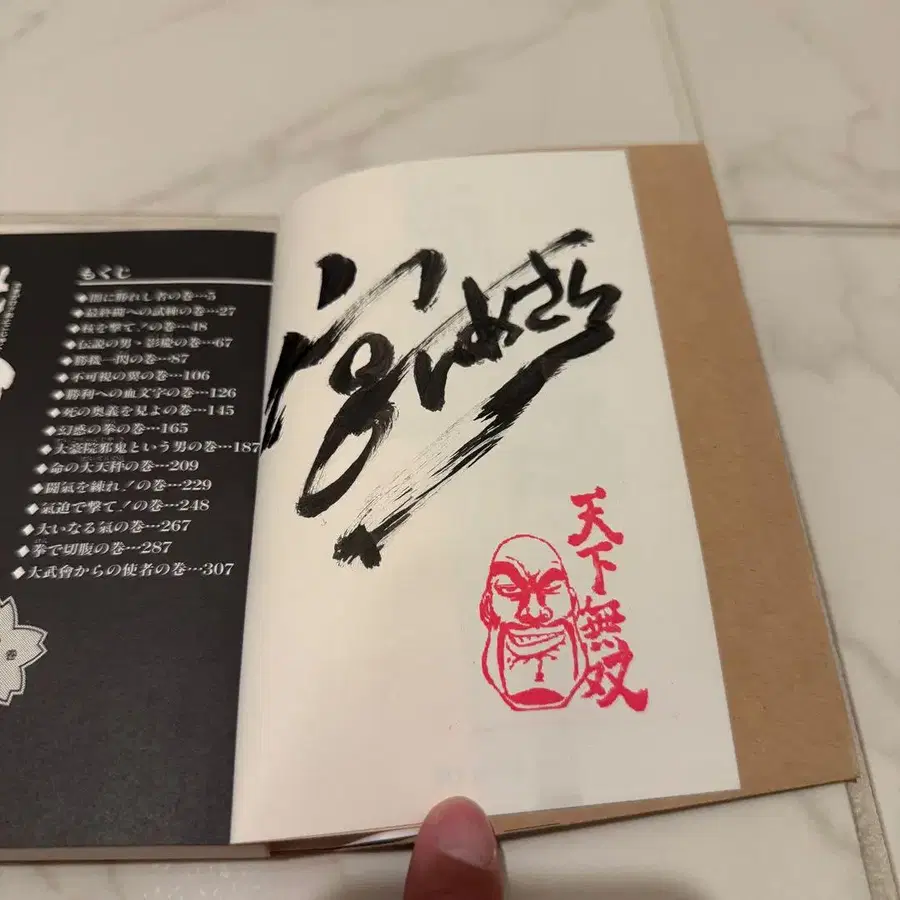 もくじ
◆闇に勝れし者の巻…5
◆最終闘への試練の巻…27
◆核を撃て!の巻…48
◆伝説の男・影慶の巻…67
◆勝機一閃の巻…87
◆不可視の翼の巻…106
◆勝利への血文字の巻…126
◆死の奥義を見よの巻…145
◆幻惑の拳の巻…165
◆大豪院邪鬼という男の巻…187
◆命の大天秤の巻…209
◆闘氣を練れ!の巻…229
◆氣迫で撃て!の巻…248
◆大いなる氣の巻…267
◆拳で切腹の巻…287
◆大武會からの使者の巻…307
宮下あきら
天下無双